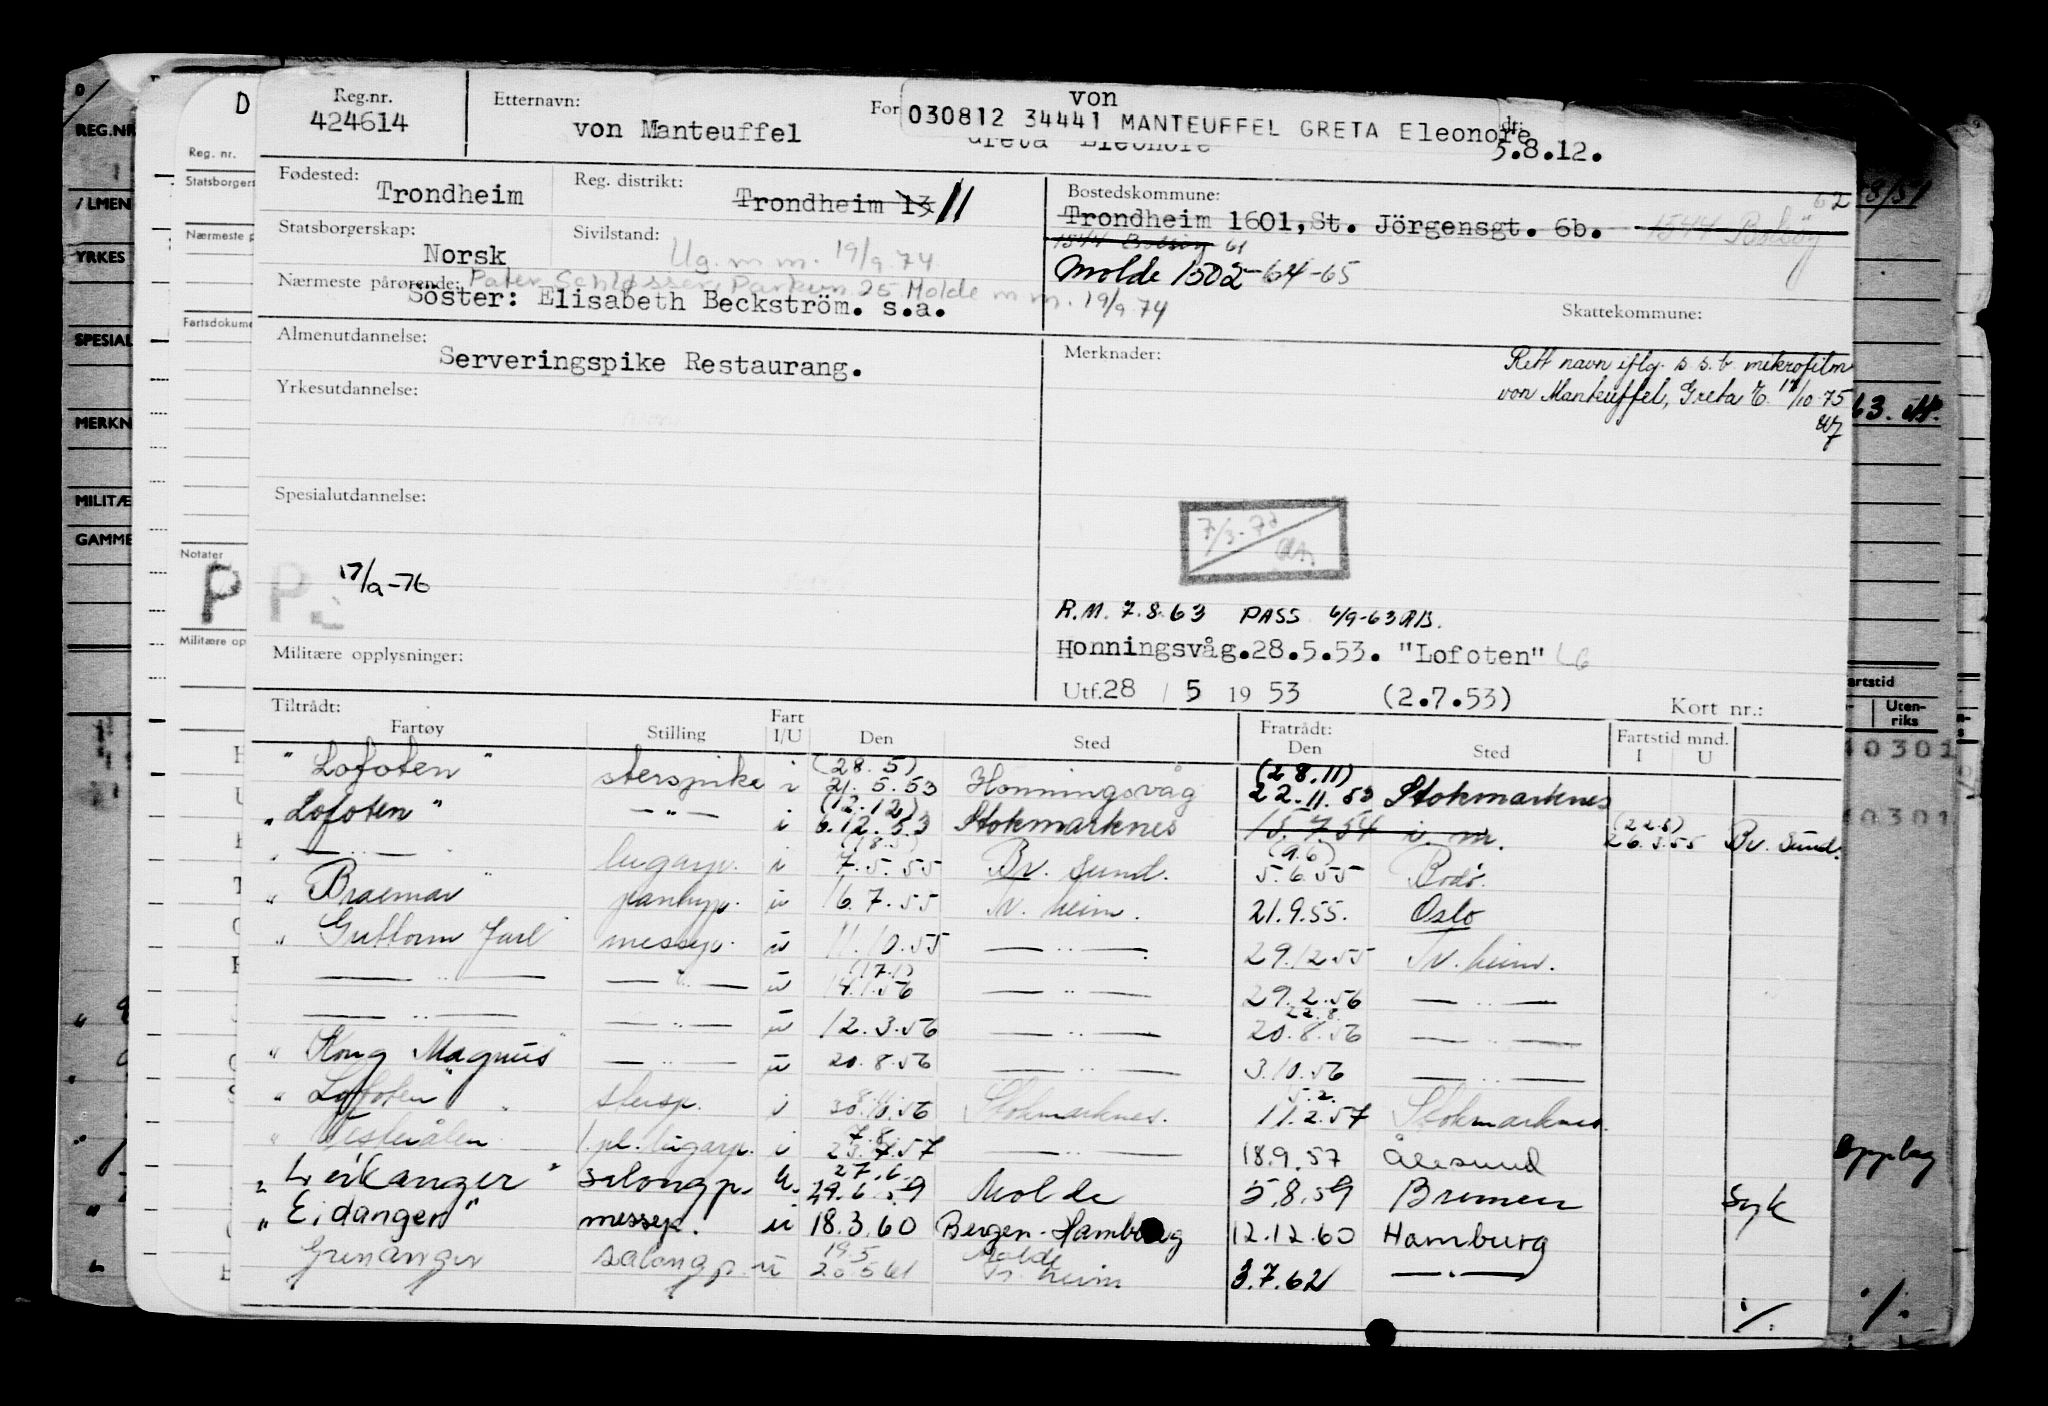 D
Reg.nr.
424614
Etternavn:
von Manteuffel
For
von
030812 34441 MANTEUFFEL GRETA Eleonore
Greta Eleonore
dt:
5.8.12.
Fødested:
Trondheim
Reg. distrikt:
Trondheim 13 11
Bostedskommune:
Trondheim 1601, St. Jörgensgt. 6b. 1544 Bolsøy 62
1544 Bolsøy 61
Molde 1502-64-65
Skattekommune:
Statsborgerskap:
Norsk
Sivilstand:
Ug. m.m. 19/9.74
Nærmeste pårørende:
Parkvn 25 Molde m.m. 19/9.74
Söster: Elisabeth Beckström. s.a.
Almenutdannelse:
Serveringspike Restaurang.
Yrkesutdannelse:
Merknader:
Rett navn iflg. s.s.b. mikrofilm
von Manteuffel, Greta E. 17/10.75
Spesialutdannelse:
P P 17/9-76
R.M. 7.8.63 PASS 6/9-63 AB.
Honningsvåg.28.5.53. "Lofoten" LG
Militære opplysninger:
Utf.28 / 5 19 53 (2.7.53)
Kort nr.:
Tiltrådt:
Fartøy Stilling Fart I/U Den Sted
Fratrådt:
Den Sted
Fartstid mnd.
I U
"Lofoten" sterspike i (28.5) 21.5.53 Honningsvåg (28.11) 22.11.53 Stokmarknes
"Lofoten" — " — i (12.12) 6.12.53 Stokmarknes 15.7.54 i. m. (22.5) 26.3.55 Br. Sund.
" — " — lugarp. i (18.5) 7.5.55 Br. sund. (9.6) 5.6.55 Bodö.
" Braemar " pantryp. u 16.7.55 Tr. heim. 21.9.55. Oslo
" Guttorm Jarl " messep. u 11.10.55 — " — 29.12.55 Tr. heim.
— " — — " — u (17.1) 14.1.56 — " — 29.2.56 — " —
— " — — " — u 12.3.56 — " — 22.8. 20.8.56 — " —
" Kong Magnus " — " — u 20.8.56 — " — 3.10.56 — " —
" Lofoten " stersp. i 30.10.56 Stokmarknes. 5.2. 11.2.57 Stokmarknes.
" Vesterålen " 1. pl. lugarp. i 7.8. 23.7.57 — " — 18.9.57 Ålesund
" Leikanger " salongp. u. 27.6. 29.6.59 Molde 5.8.59 Bremen Syk
" Eidanger " messep. u 18.3.60 Bergen-Hamburg 12.12.60 Hamburg
Grenanger salongp. u 19.5 20.5.61 Molde Tr. heim 3.7.62 — " —
./.
REG.NR
/LMEN
YRKES
SPESIAL
MERKN
MILITÆ
GAMME
Reg. nr.
Statsborgers
Nærmeste p
Fartsdokume
Notater
Militære op
artstid
Uten-
riks
40301
40301
Opplag
./.